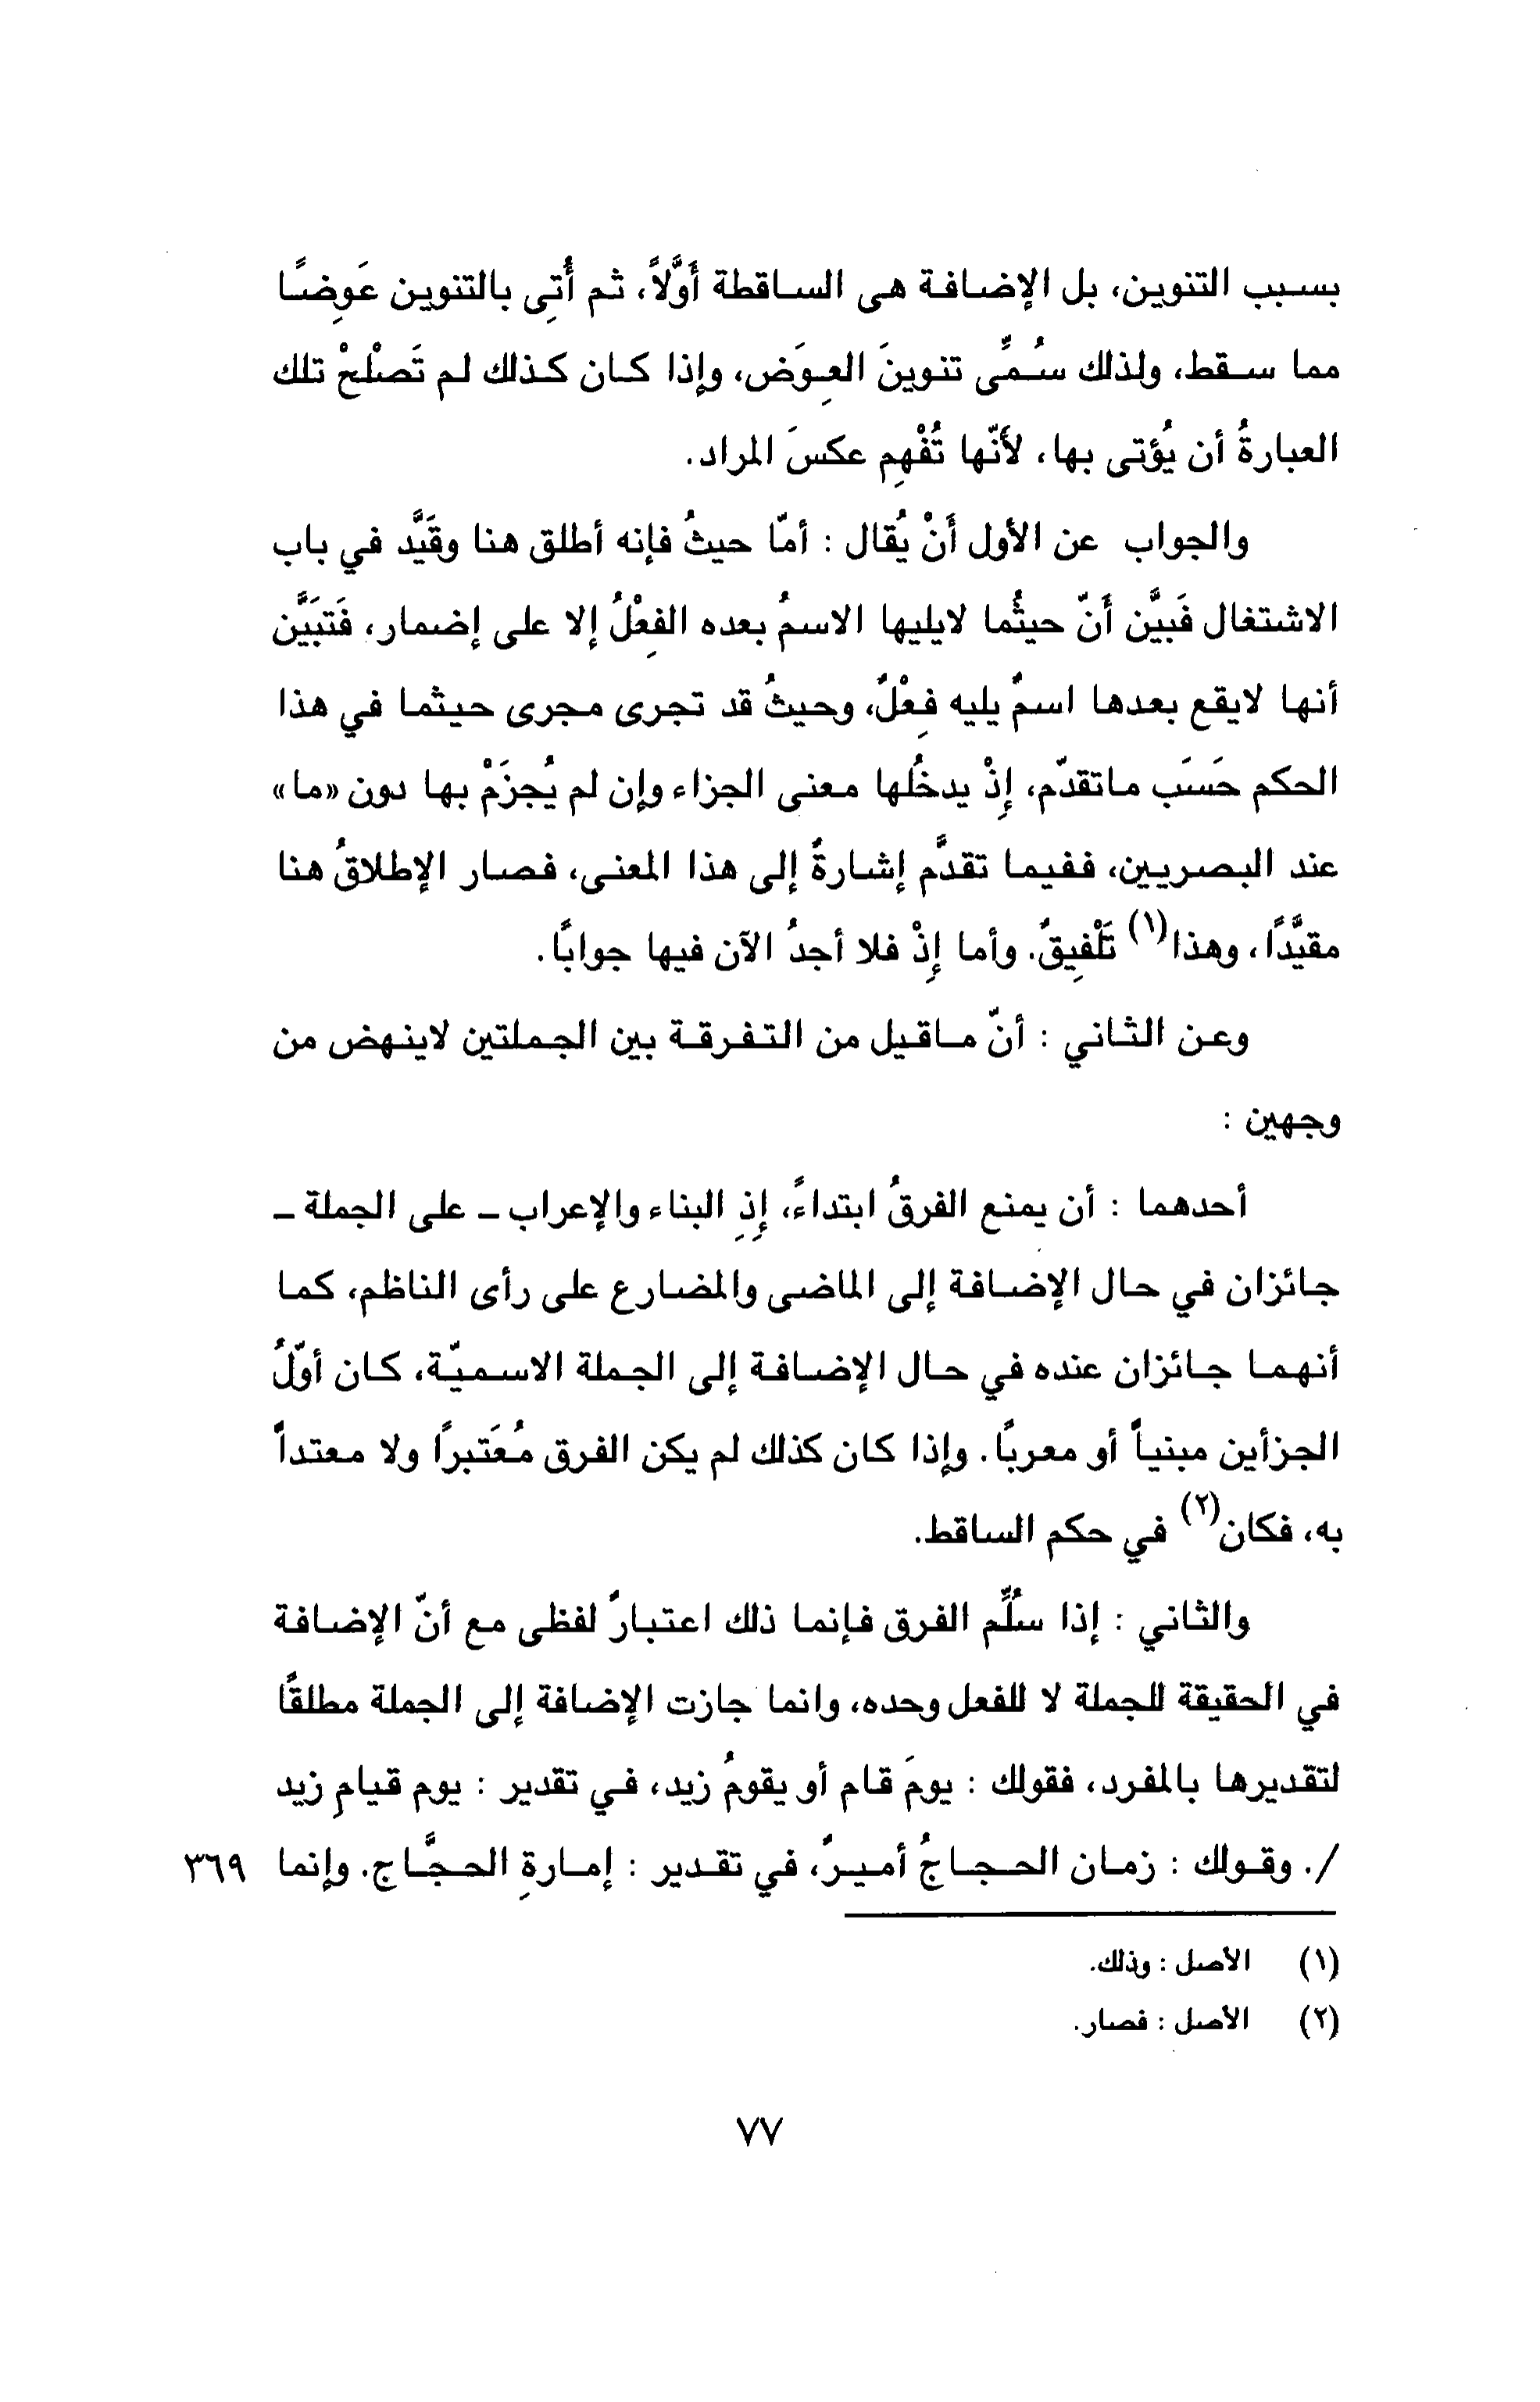 بسبب التنوين، بل الإضافة هى الساقطة أوَّلاً، ثم أُتِى بالتنوين عَوِضًا
مما سقط، ولذلك سُمِّى تنوينَ العِوَض، وإذا كان كذلك لم تَصْلحْ تلك
العبارةُ أن يُؤتى بها، لأنّها تُفْهِم عكسَ المراد.
والجواب عن الأول أَنْ يُقال : أمّا حيثُ فإنه أطلق هنا وقَيَّد في باب
الاشتغال فَبيَّن أَنّ حيثُما لايليها الاسمُ بعده الفِعْلُ إلا على إضمار، فَتبَيَّن
أنها لايقع بعدها اسمٌ يليه فِعْلٌ، وحيثُ قد تجرى مجرى حيثما في هذا
الحكم حَسَب ماتقدّم، إِذْ يدخُلها معنى الجزاء وإن لم يُجزَمْ بها دون «ما»
عند البصريين، ففيما تقدَّم إشارةٌ إلى هذا المعنى، فصار الإطلاقُ هنا
مقيَّدًا، وهذا(١) تَلْفِيقٌ. وأما إِذْ فلا أجدُ الآن فيها جوابًا.
وعن الثاني : أنّ ماقيل من التفرقة بين الجملتين لاينهض من
وجهين :
أحدهما : أن يمنع الفرقُ ابتداءً، إِذِ البناء والإعراب - على الجملة -
جائزان في حال الإضافة إلى الماضى والمضارع على رأى الناظم، كما
أنهما جائزان عنده في حال الإضافة إلى الجملة الاسميّة، كان أوّلُ
الجزأين مبنياً أو معربًا. وإذا كان كذلك لم يكن الفرق مُعَتبرًا ولا معتداً
به، فكان(٢) في حكم الساقط.
والثاني : إذا سُلِّم الفرق فإنما ذلك اعتبارٌ لفظى مع أنّ الإضافة
في الحقيقة للجملة لا للفعل وحده، وانما جازت الإضافة إلى الجملة مطلقًا
لتقديرها بالمفرد، فقولك : يومَ قام أو يقومُ زيد، في تقدير : يوم قيامِ زيد
/. وقولك : زمان الحجاجُ أميرٌ، في تقدير : إمارةِ الحجَّاج. وإنما ٣٦٩
(١) الأصل : وذلك.
(٢) الأصل : فصار.
٧٧